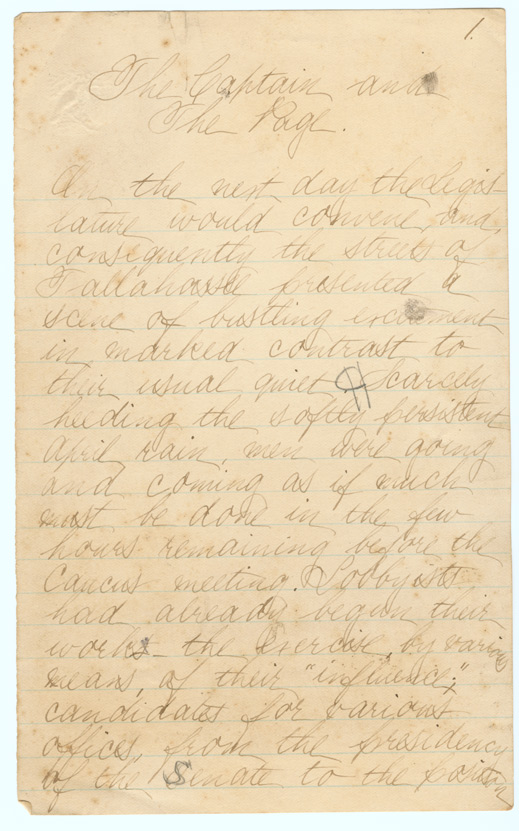 1.
The Captain and
The Page.
On the next day the Legis-
lature would convene, and,
consequently the streets of
Tallahassee presented a
scene of bustling excitement
in marked contrast to
their usual quiet ¶ Scarcely
heeding the softly persistent
April rain, men were going
and coming as if much
must be done in the few
hours remaining before the
caucus meeting. Lobbyists
had already begun their
works - the exercise, by various
means, of their "influence";
candidates for various
offices, from the presidency
of the Senate to the